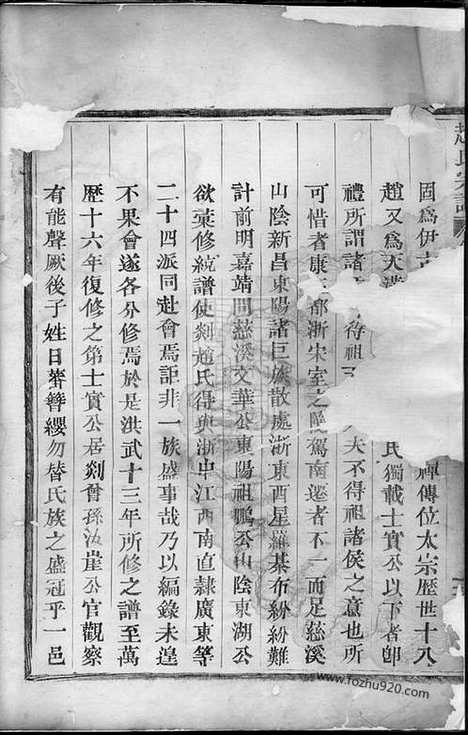 趙氏宗譜
固為伊
禪傳位太宗歷世十八
趙又為天潢
氏獨載士實公以下者卽
禮所謂諸
得祖
夫不得祖諸侯之意也
可惜者康
都浙宋室之
駕南遷者不一而足慈溪
山陰新昌東陽諸巨族散處浙東西星羅棊布紛紛難
計前明嘉靖間慈溪文華公東陽祖鵬公山陰東湖公
欲彙修統譜使剡趙氏得與浙中江西南直隸廣東等
二十四派同赴會焉詎非一族盛事哉乃以編錄未遑
不果會遂各分修焉於是洪武十三年所修之譜至萬
歷十六年復修之第士實公居剡曾孫汝崖公官觀察
有能聲厥後子姓日蕃簪纓勿替氏族之盛冠乎一邑
www.fozhu920.com